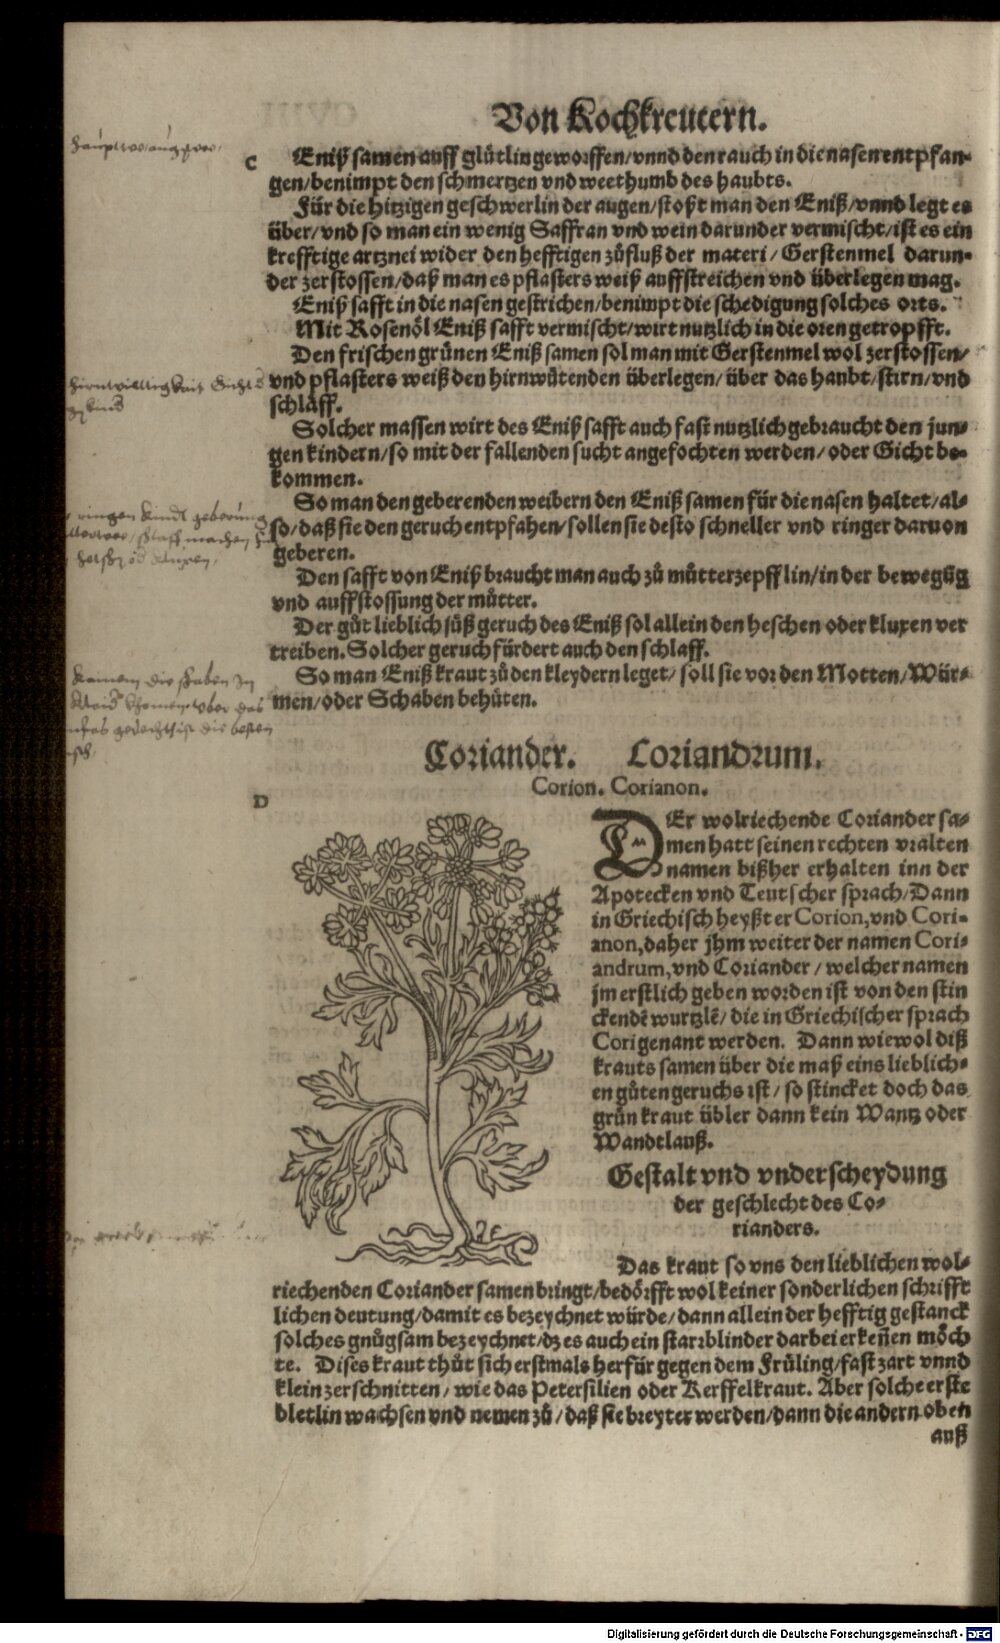 Von Kochkreutern.
C
Eniß samen auff glůtlin geworffen/vnnd den rauch in die nasen entpfan-
gen/benimpt den schmertzen vnd weethumb des haubts.
Für die hitzigen geschwerlin der augen/stoßt man den Eniß/vnnd legt es
über/vnd so man ein wenig Saffran vnd wein darunder vermischt/ist es ein
krefftige artznei wider den hefftigen zůfluß der materi/Gerstenmel darun-
der zerstossen/daß man es pflasters weiß auffstreichen vnd überlegen mag.
Eniß safft in die nasen gestrichen/benimpt die schedigung solches orts.
Mit Rosenöl Eniß safft vermischt/wirt nutzlich in die oren getropfft.
Den frischen grünen Eniß samen sol man mit Gerstenmel wol zerstossen/
vnd pflasters weiß den hirnwütenden überlegen/über das haubt/stirn/vnd
schläff.
Solcher massen wirt des Eniß safft auch fast nutzlich gebraucht den jun-
gen kindern/so mit der fallenden sucht angefochten werden/oder Gicht be-
kommen.
So man den geberenden weibern den Eniß samen für die nasen haltet/al-
so/daß sie den geruch entpfahen/sollen sie desto schneller vnd ringer daruon
geberen.
Den safft von Eniß braucht man auch zů můtterzepfflin/in der bewegũg
vnd auffstossung der můtter.
Der gůt lieblich süß geruch des Eniß sol allein den heschen oder kluxen ver
treiben. Solcher geruch fürdert auch den schlaff.
So man Eniß kraut zů den kleydern leget/soll sie vor den Motten/Wür-
men/oder Schaben behüten.
Coriander. Coriandrum.
Corion. Corianon.
D
DEr wolriechende Coriander sa-
men hatt seinen rechten vralten
namen bißher erhalten inn der
Apotecken vnd Teutscher sprach/Dann
in Griechisch heyßt er Corion, vnd Cori-
anon, daher jhm weiter der namen Cori-
andrum, vnd Coriander/welcher namen
jm erstlich geben worden ist von den stin
ckendẽ wurtzlẽ/die in Griechischer sprach
Cori genant werden. Dann wiewol diß
krauts samen über die maß eins lieblich-
en gůten geruchs ist/so stincket doch das
grün kraut übler dann kein Wantz oder
Wandtlauß.
Gestalt vnd vnderscheydung
der geschlecht des Co-
rianders.
Das kraut so vns den lieblichen wol-
riechenden Coriander samen bringt/bedörfft wol keiner sonderlichen schrifft
lichen deutung/damit es bezeychnet würde/dann allein der hefftig gestanck
solches gnůgsam bezeychnet/dz es auch ein starrblinder darbei erkeñen möch
te. Dises kraut thůt sich erstmals herfür gegen dem Früling/fast zart vnnd
klein zerschnitten/wie das Petersilien oder Kerffelkraut. Aber solche erste
bletlin wachsen vnd nemen zů/daß sie breyter werden/dann die andern oben
auß
Digitalisierung gefördert durch die Deutsche Forschungsgemeinschaft - DFG